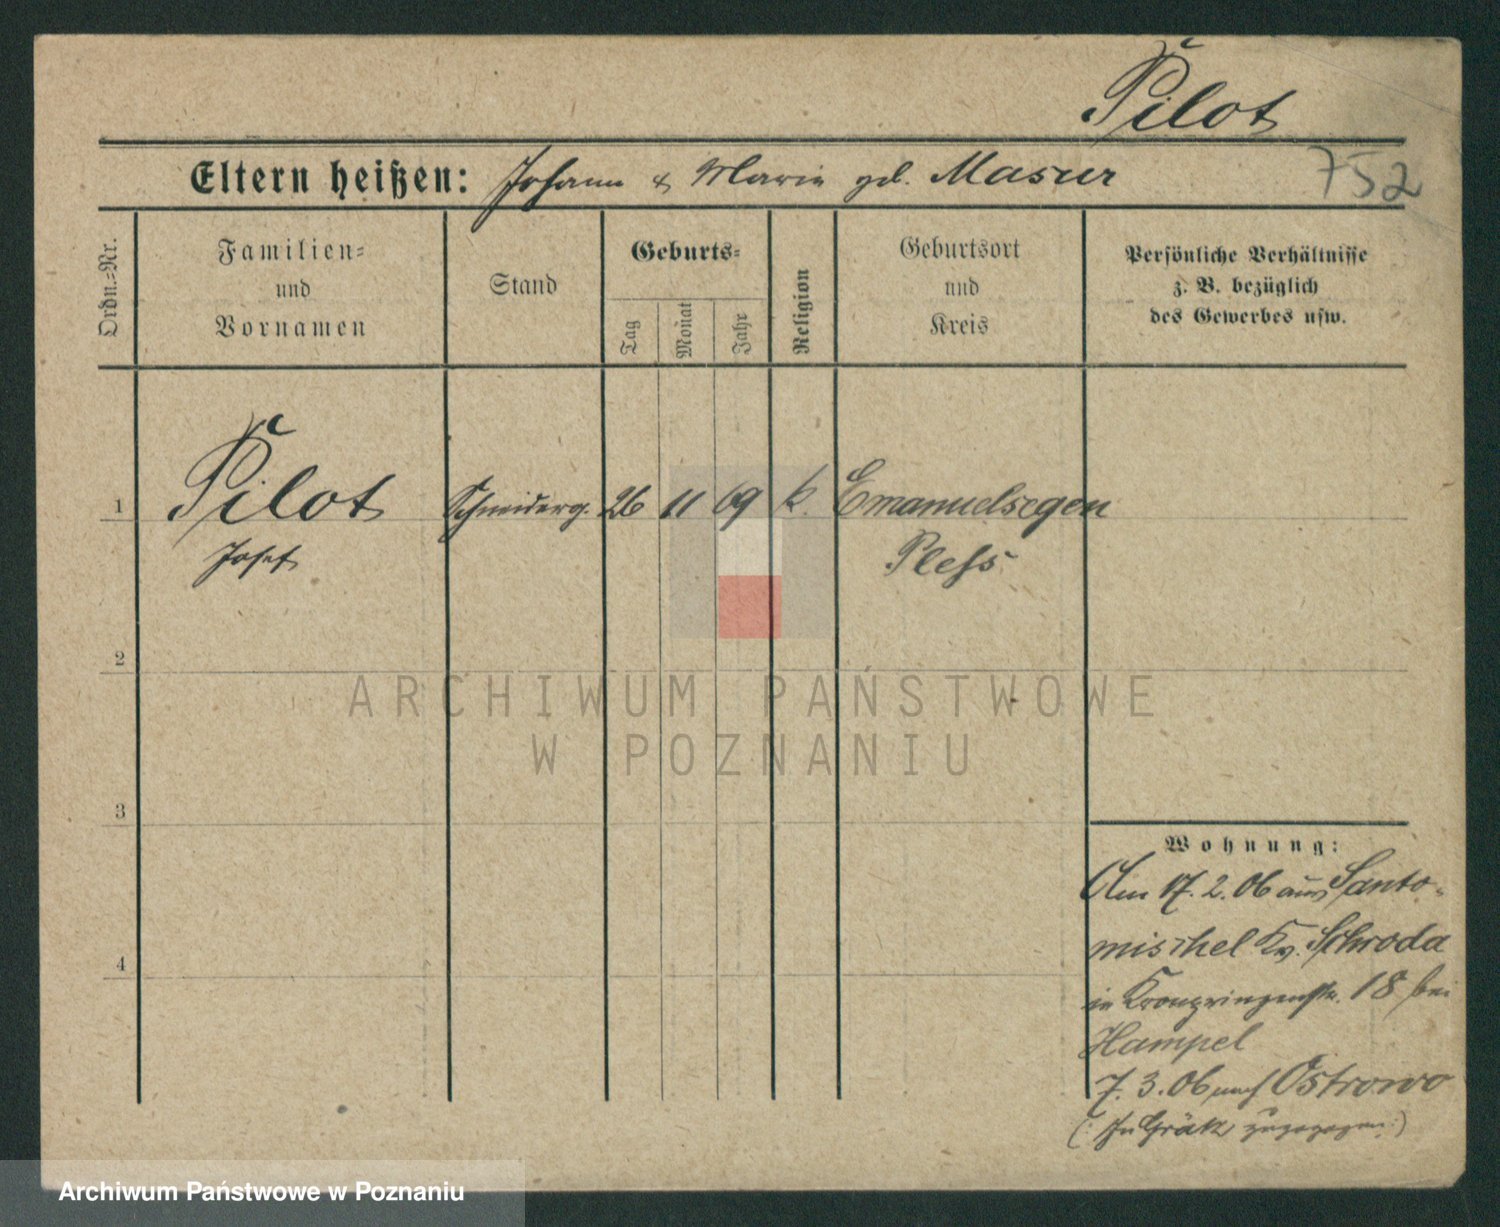 Pilot
Eltern heißen: Johann & Marie geb. Masur
752
Ordn.-Nr.
Familien-
und
Vornamen
Stand
Geburts-
Tag
Monat
Jahr
Religion
Geburtsort
und
Kreis
Persönliche Verhältnisse
z. B. bezüglich
des Gewerbes usw.
1 Pilot Schneiderg. 26 11 69 k. Emanuelsegen
Josef Pleß
2
ARCHIWUM PAŃSTWOWE
W POZNANIU
3
Wohnung:
Am 17. 2. 06 aus Santo-
mischel Kr. Schroda
in Kronprinzenstr. 18 bei
4
Hampel
7. 3. 06 nach Ostrowo
(: In Grätz zugezogen :)
Archiwum Państwowe w Poznaniu